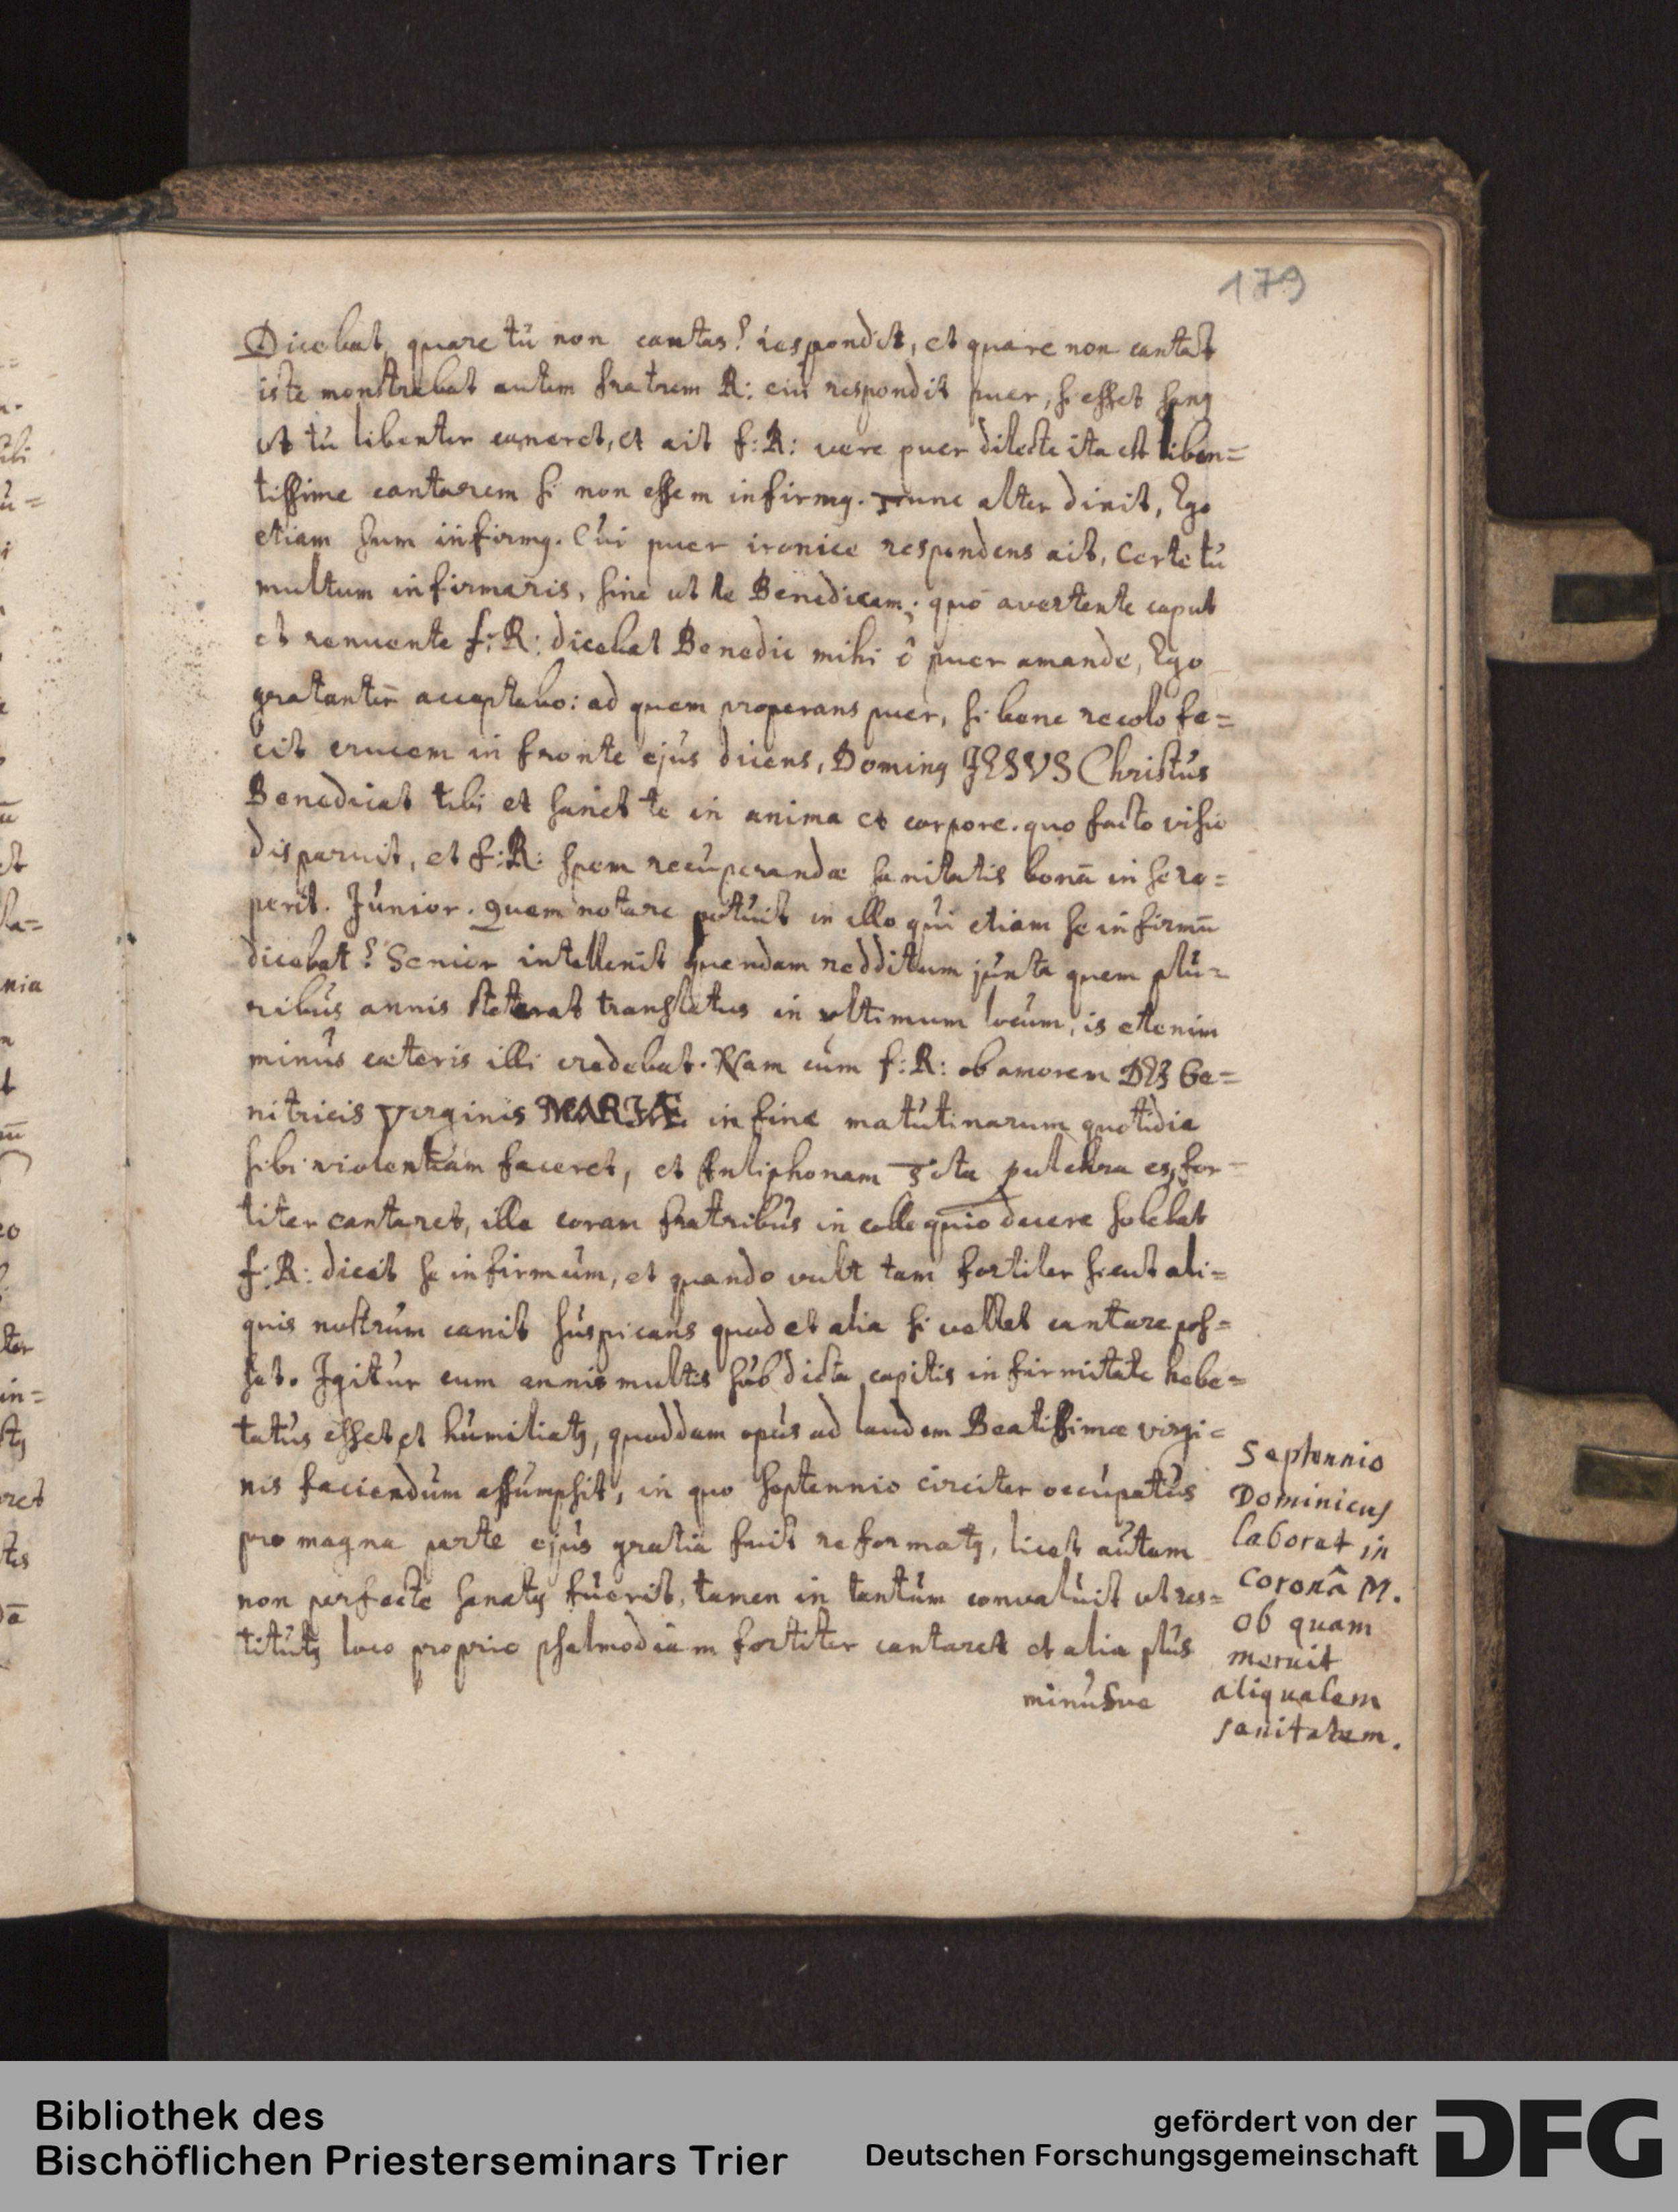 179
Dicebat, quare tú non cantas? respondit, et quare non cantat
iste monstrabat autem fratrem R: cui respondit puer, si esset sanꝰ
ut tú libenter caneret, et ait f: R: vere puer dilecte ita est liben=
tissime cantarem si non essem infirmꝰ. Tunc alter dixit, Ego
etiam sum infirmꝰ. Cúi puer ironice respondens ait, Certe tú
multum infirmaris, sine ut te Benedicam; quo avertente caput
et renuente f: R: dicebat Benedic mihi ô puer amande, Ego
gratanter acceptabo: ad quem properans puer, si bene recolo fe=
cit crucem in fronte ejús dicens, Dominꝰ JESVS Christús
Benedicat tibi et sanet te in anima et corpore. quo facto visio
disparuit, et f: R: spem recúperandæ sanitatis bonā in se re=
perit. Júnior. Quem notare potúit in illo qúi etiam se infirmū
dicebat? Senior intellexit quendam redditum júxta quem plú=
ribús annis steterat translatus in ultimum locum, is etenim
minús cæteris illi credebat. Nam cúm f: R: ob amorem DEI Ge=
nitricis Virginis MARIÆ in fine matútinarum quotidie
sibi violentiam faceret, et Antiphonam Tota pulchra es, for=
titer cantaret, ille coram fratribús in colloquio dicere solebat
f: R: dicit se infirmúm, et quando vult tam fortiter sicut ali=
quis nostrúm canit súspicans quod et alia si vellet cantare pos=
set. Igitúr cum annis multis súb dicta capitis infirmitate hebe=
tatús esset et húmiliatꝰ, quoddam opús ad laudem Beatissimæ virgi=
nis faciendúm assúmpsit, in quo septennio circiter occúpatús
pro magna parte ejús gratia fuit reformatꝰ, licet aútem
non perfecte sanatꝰ fúerit, tamen in tantúm convalúit ut res=
titútꝰ loco proprio psalmodiam fortiter cantaret et alia plús
minúsve
Septennio
Dominicus
laborat in
coronâ M.
ob quam
meruit
aliqualem
sanitatem.
Bibliothek des
Bischöflichen Priesterseminars Trier
gefördert von der
Deutschen Forschungsgemeinschaft
DFG